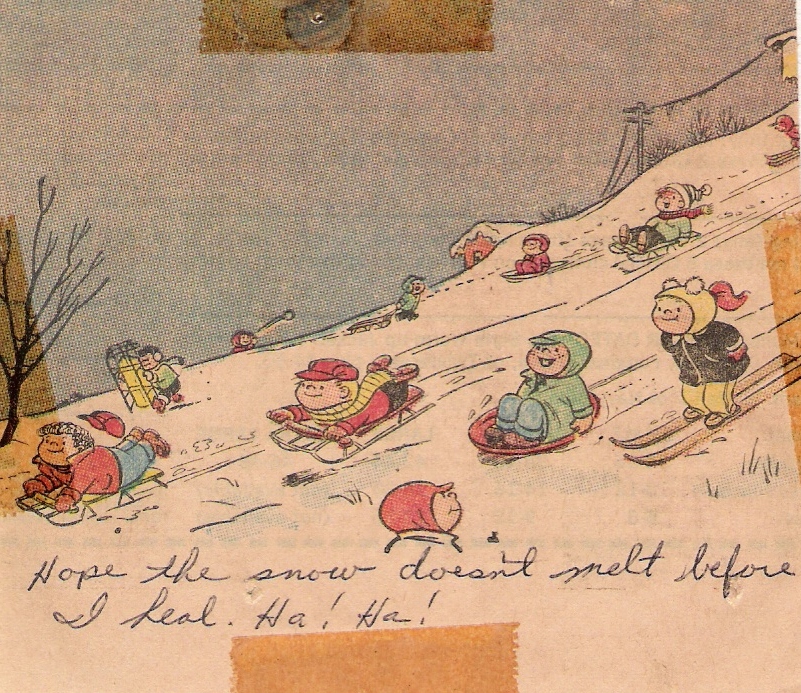 Hope the snow doesn't melt before
I heal. Ha! Ha!